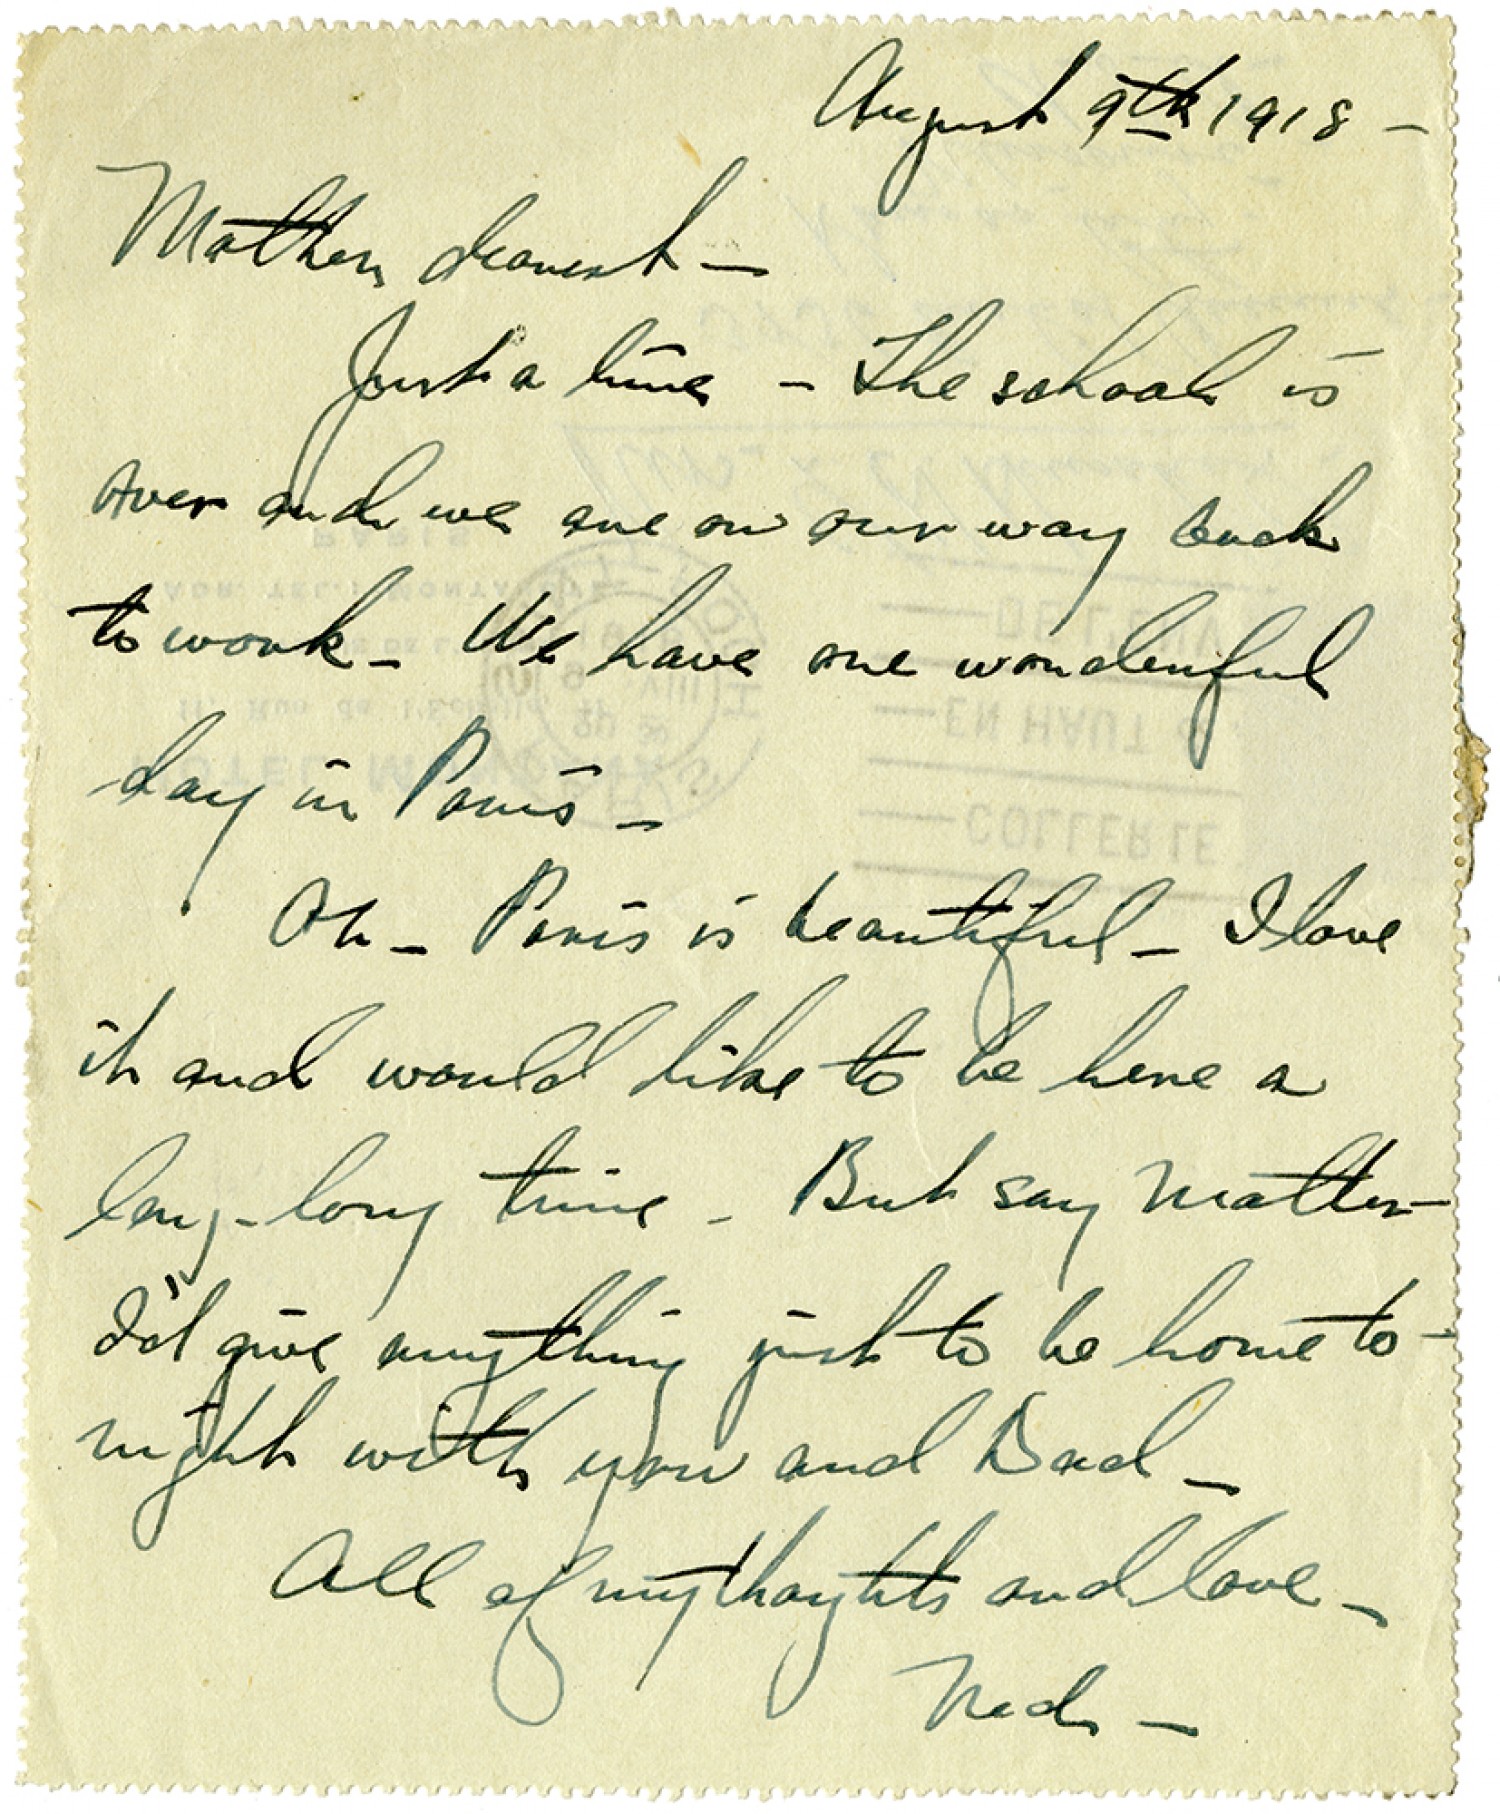 August 9th 1918 -
Mother dearest -
Just a line - The school is
over and we are on our way back
to work - We have one wonderful
day in Paris -
Oh - Paris is beautiful - I love
it and would like to be here a
long - long time - But say Mother -
I'd give anything just to be home to-
night with you and Dad -
All of my thoughts and love -
Ned -
PARIS
11, Rue de l'Échelle
COLLER LE
EN HAUT